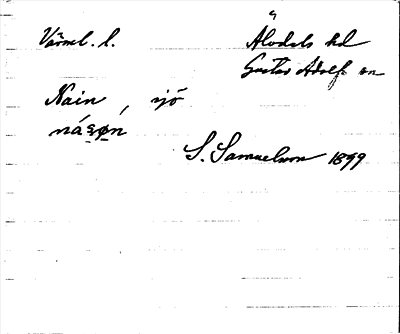 Värml. l. Älvdals hd
Gustav Adolf sn
Nain, sjö
S. Samuelson 1899